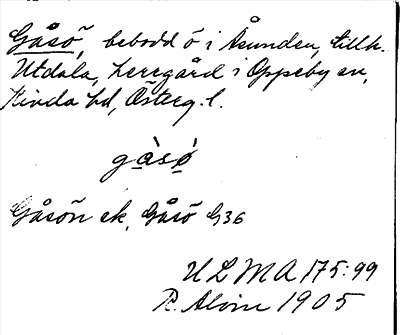 Gåsö, bebodd ö i Åsunden, tillh.
Utdala, herregård i Oppeby sn,
Kinda hd, Österg. l.
gàsò
Gåsön ek, Gåsö G36
ULMA 175:99
R. Alvin 1905